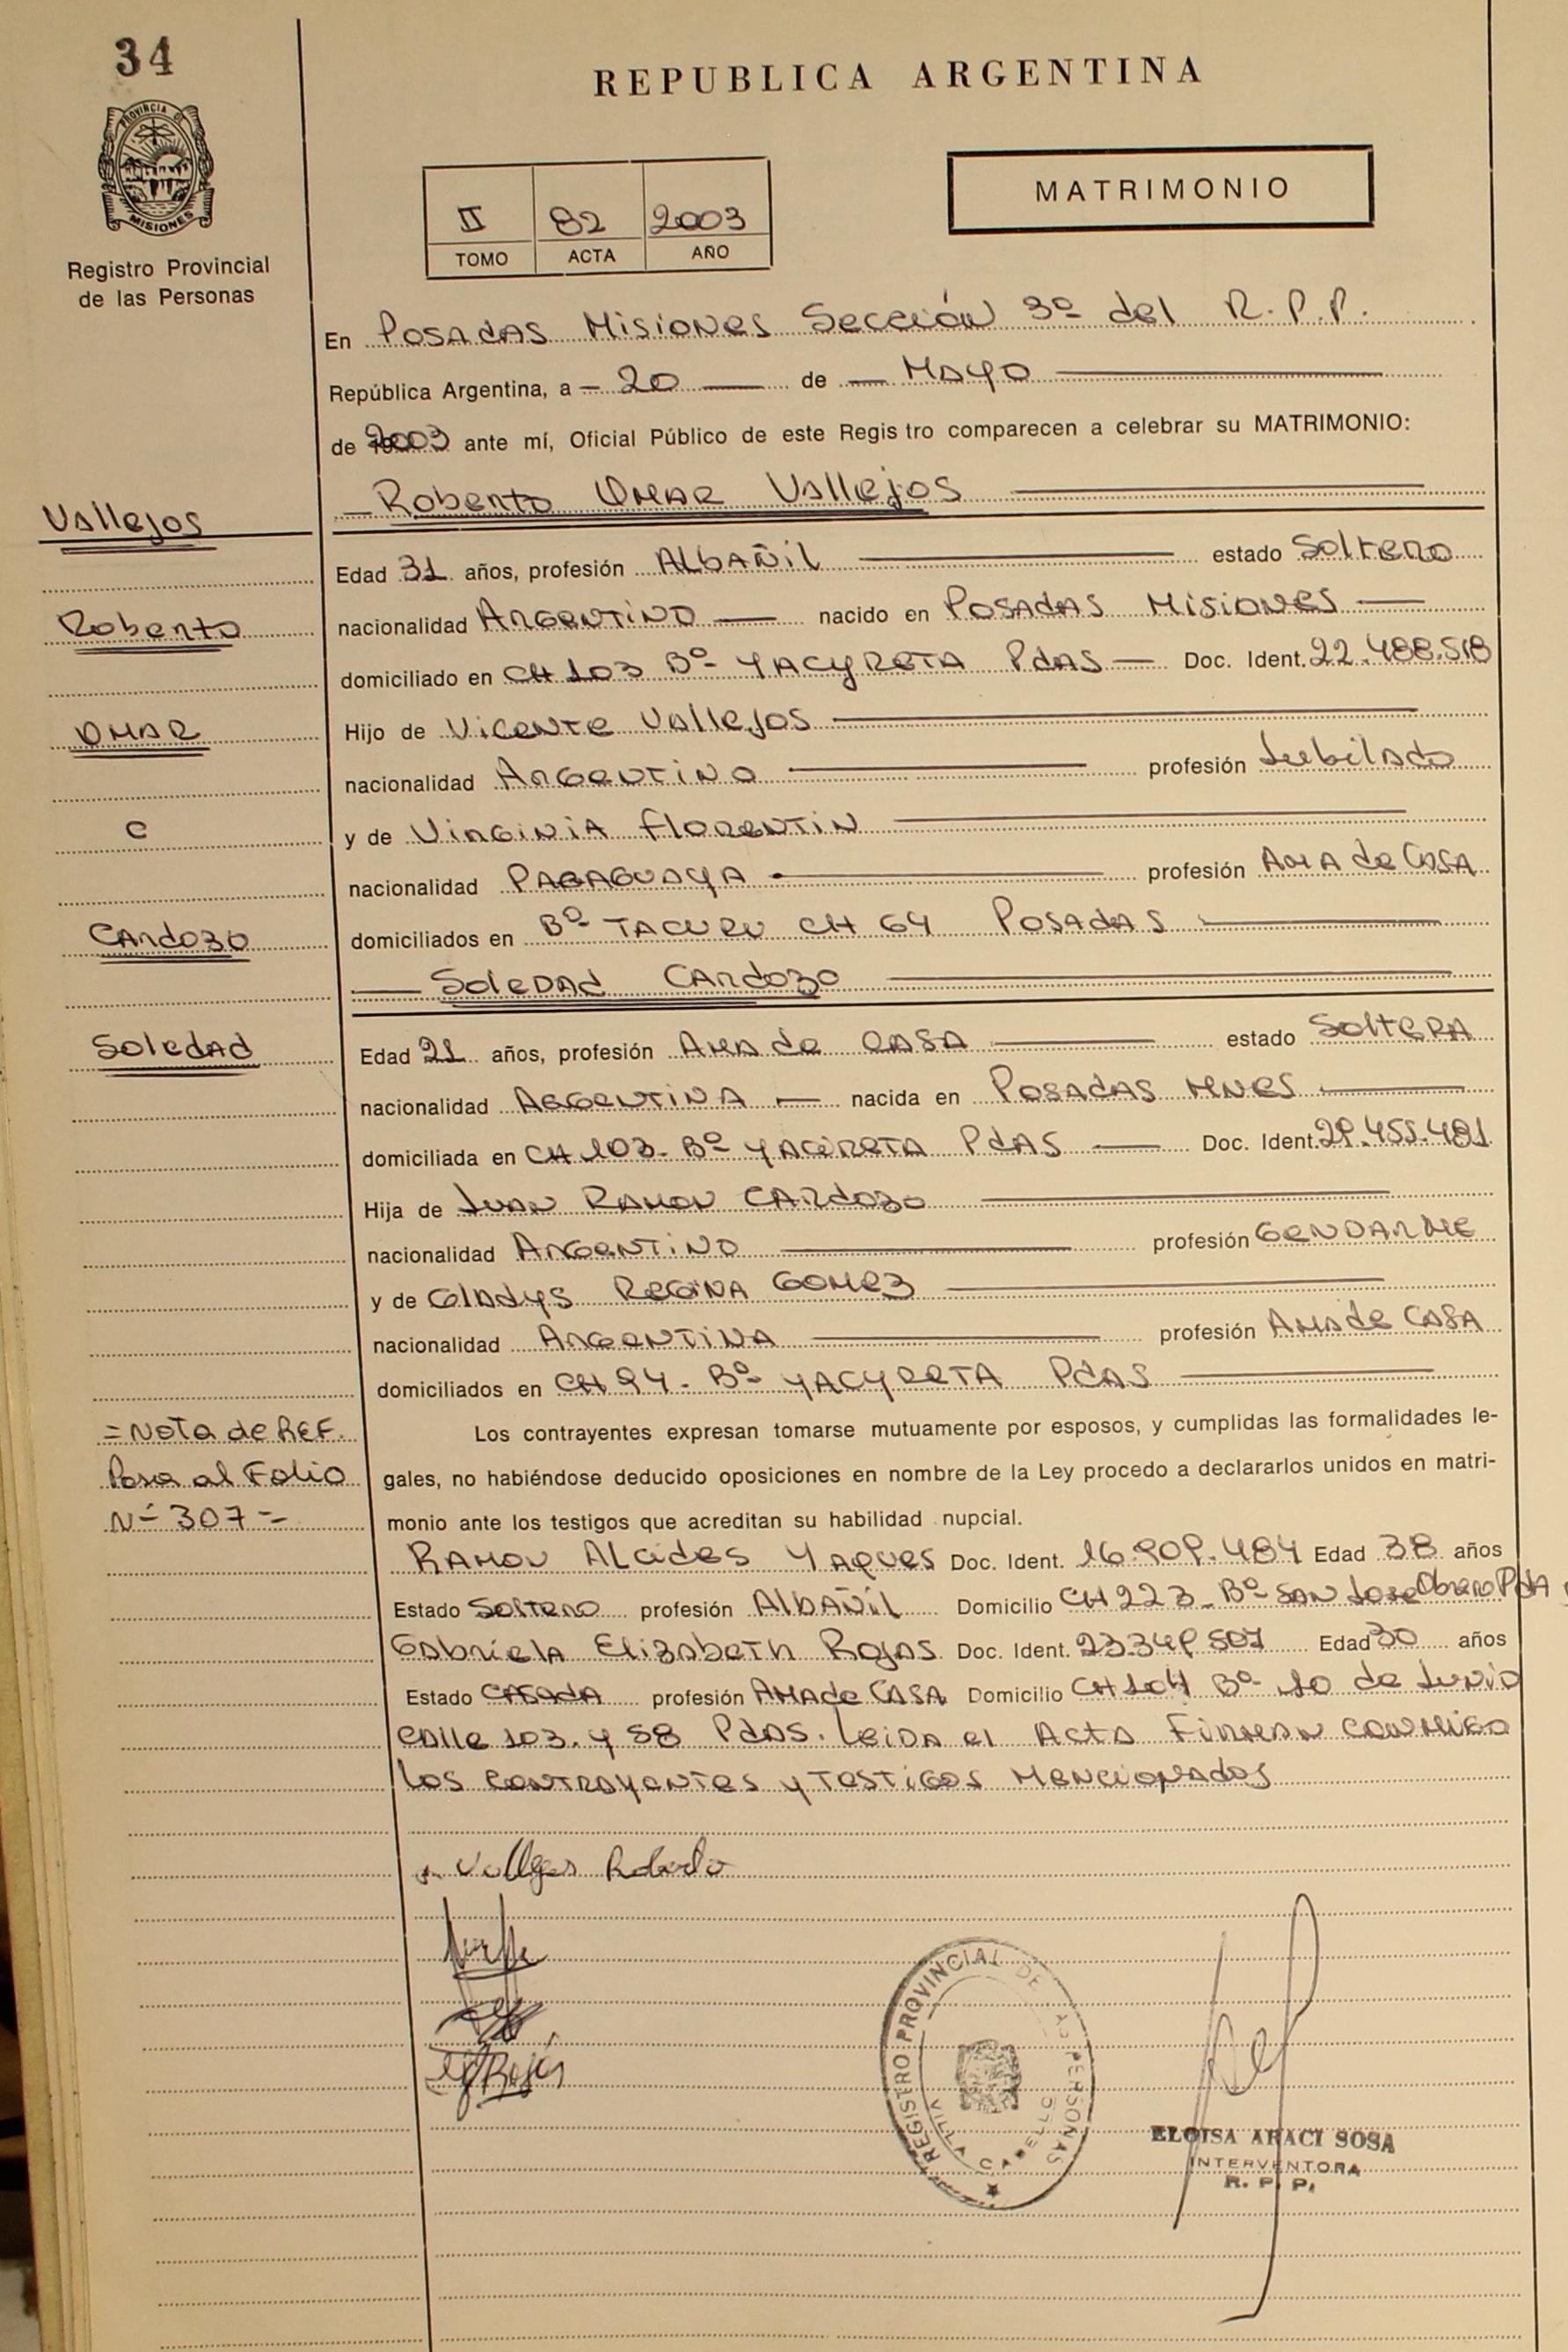 34
REPUBLICA ARGENTINA
PROVINCIA DE
MISIONES
Registro Provincial
de las Personas
II 82 2003
TOMO ACTA AÑO
MATRIMONIO
En Posadas Misiones Sección 3º del R.P.P.
República Argentina, a 20 de Mayo
de 2003 ante mí, Oficial Público de este Registro comparecen a celebrar su MATRIMONIO:
Roberto Omar Vallejos
Vallejos
Edad 31 años, profesión Albañil estado Soltero
Roberto
nacionalidad Argentino nacido en Posadas Misiones
domiciliado en CH 103 Bº Yacyreta Pdas Doc. Ident. 22.488.518
Omar
Hijo de Vicente Vallejos
nacionalidad Argentino profesión Jubilado
c
y de Virginia Florentin
nacionalidad Paraguaya profesión Ama de Casa
Cardozo
domiciliados en Bº Tacuru CH 64 Posadas
Soledad Cardozo
Soledad
Edad 21 años, profesión Ama de Casa estado Soltera
nacionalidad Argentina nacida en Posadas Mnes
domiciliada en CH 103- Bº Yacireta Pdas Doc. Ident. 29.455.481
Hija de Juan Ramon Cardozo
nacionalidad Argentino profesión Gendarme
y de Gladys Regina Gomez
nacionalidad Argentina profesión Ama de Casa
domiciliados en CH 94- Bº Yacyreta Pdas
= Nota de REF.
Pasa al Folio
Nº 307=
Los contrayentes expresan tomarse mutuamente por esposos, y cumplidas las formalidades le-
gales, no habiéndose deducido oposiciones en nombre de la Ley procedo a declararlos unidos en matri-
monio ante los testigos que acreditan su habilidad nupcial.
Ramon Alcides Yaques Doc. Ident. 16.909.484 Edad 38 años
Estado Soltero profesión Albañil Domicilio CH 223- Bº San Jose Obrero Pdas
Gabriela Elizabeth Rojas Doc. Ident. 23.349.507 Edad 30 años
Estado Casada profesión Ama de Casa Domicilio CH 104 Bº 10 de Junio
Calle 103 y 58 Pdas. Leida el Acta Firman conmigo
los contrayentes y testigos mencionados
Vallejos Roberto
Rojas
REGISTRO PROVINCIAL DE LAS PERSONAS
VILLA CABELLO
ELOISA ARACI SOSA
INTERVENTORA
R. P. P.